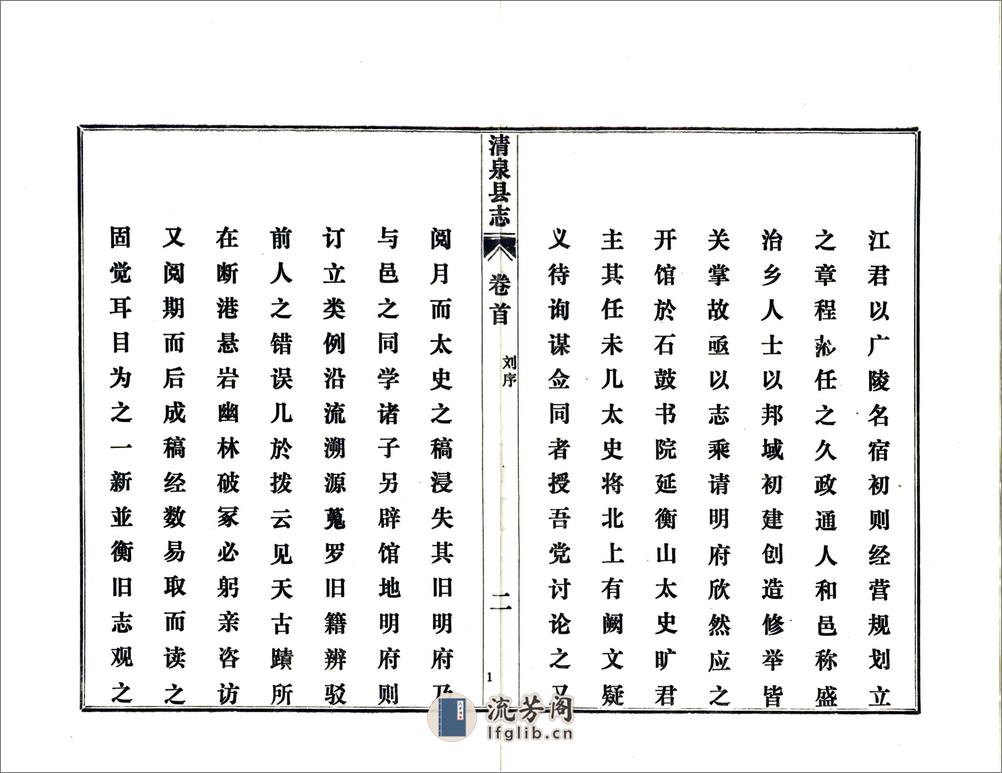 江君以广陵名宿初则经营规划立
之章程沁任之久政通人和邑称盛
治乡人士以邦域初建创造修举皆
关掌故亟以志乘请明府欣然应之
开馆於石鼓书院延衡山太史旷君
主其任未几太史将北上有阙文疑
义待询谋佥同者授吾党讨论之又
清泉县志
卷首
刘序
二
1
阅月而太史之稿浸失其旧明府乃
与邑之同学诸子另辟馆地明府则
订立类例沿流溯源蒐罗旧籍辨驳
前人之错误几於拨云见天古蹟所
在断港悬岩幽林破冢必躬亲咨访
又阅期而后成稿经数易取而读之
固觉耳目为之一新並衡旧志观之
流芳阁
lfglib.cn